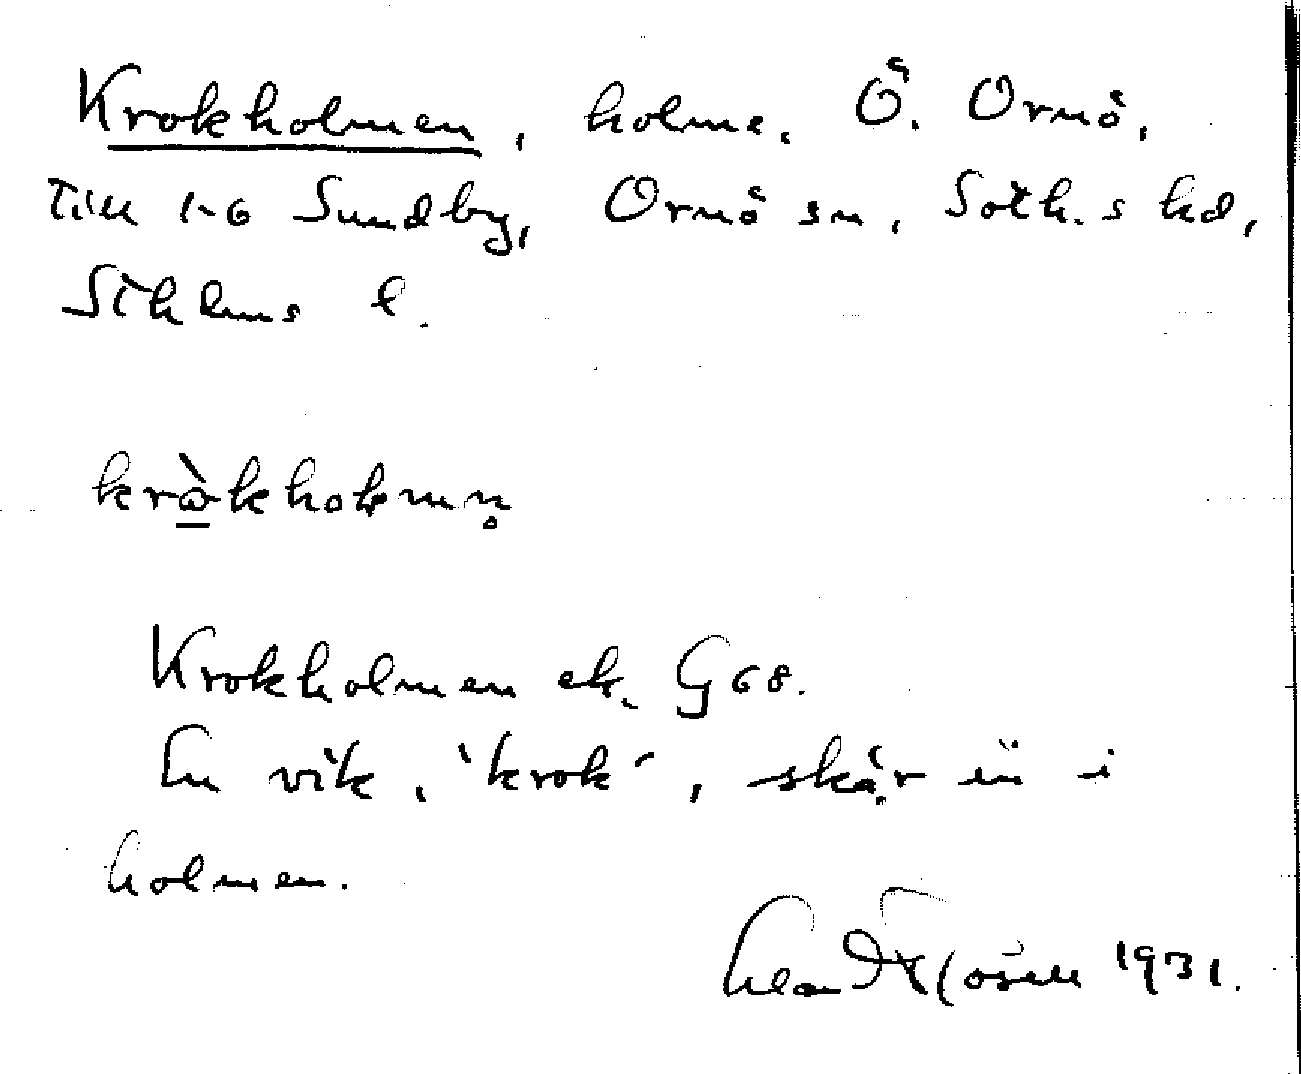 Krokholmen, holme. Ö. Ornö,
Till 1-6 Sundby, Ornö sn, Soth.s hd,
Sthlms l.
Krokholmen ek. G 68.
En vik, "krok", skär in i
holmen.
1931.